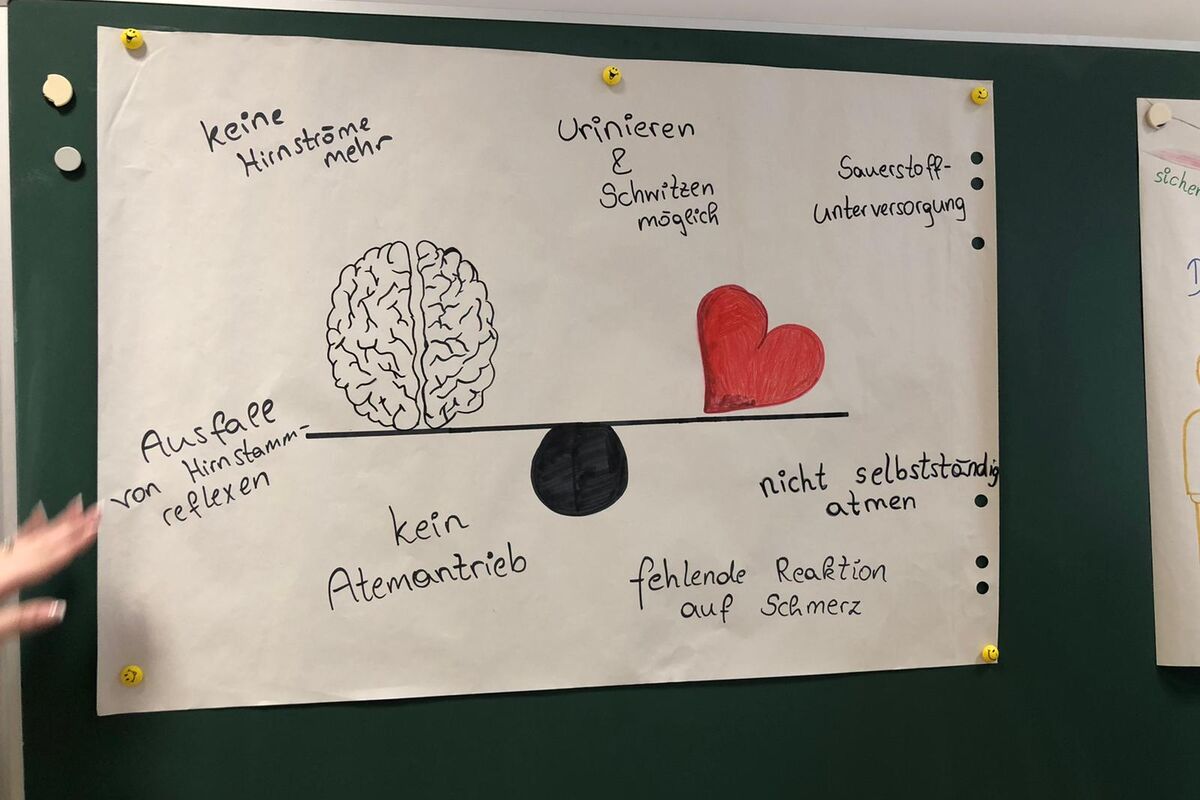 keine
Hirnströme
mehr
Urinieren
&
Schwitzen
möglich
Sauerstoff-
unterversorgung
Ausfall
von Hirnstamm-
reflexen
kein
Atemantrieb
nicht selbstständig
atmen
fehlende Reaktion
auf Schmerz